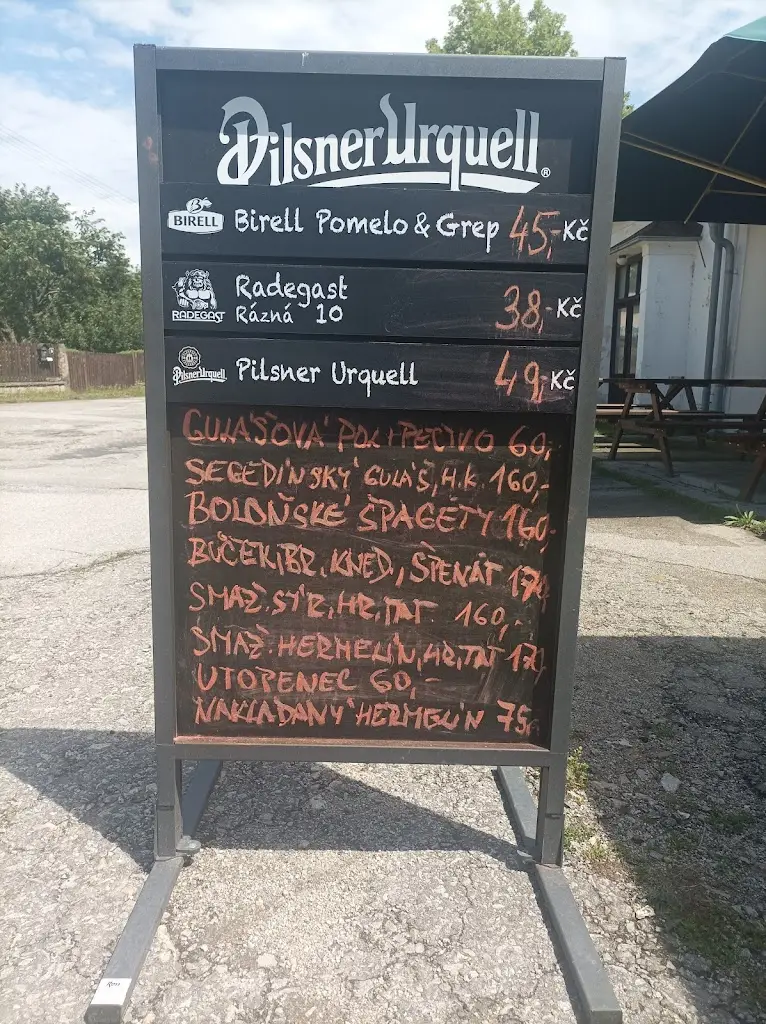 Pilsner Urquell®
BIRELL Birell Pomelo & Grep 45,- Kč
RADEGAST Radegast
Rázná 10 38,- Kč
Pilsner Urquell Pilsner Urquell 49,- Kč
GULÁŠOVÁ POL + PEČIVO 60,-
SEGEDÍNSKÝ GULÁŠ, H.K. 160,-
BOLOŇSKÉ ŠPAGETY 160,-
BŮČEK, BR. KNED., ŠPENÁT
SMAŽ. SÝR, HR, TAT. 160,-
SMAŽ. HERMELÍN, HR, TAT
UTOPENEC 60,-
NAKLÁDANÝ HERMELÍN 75,-